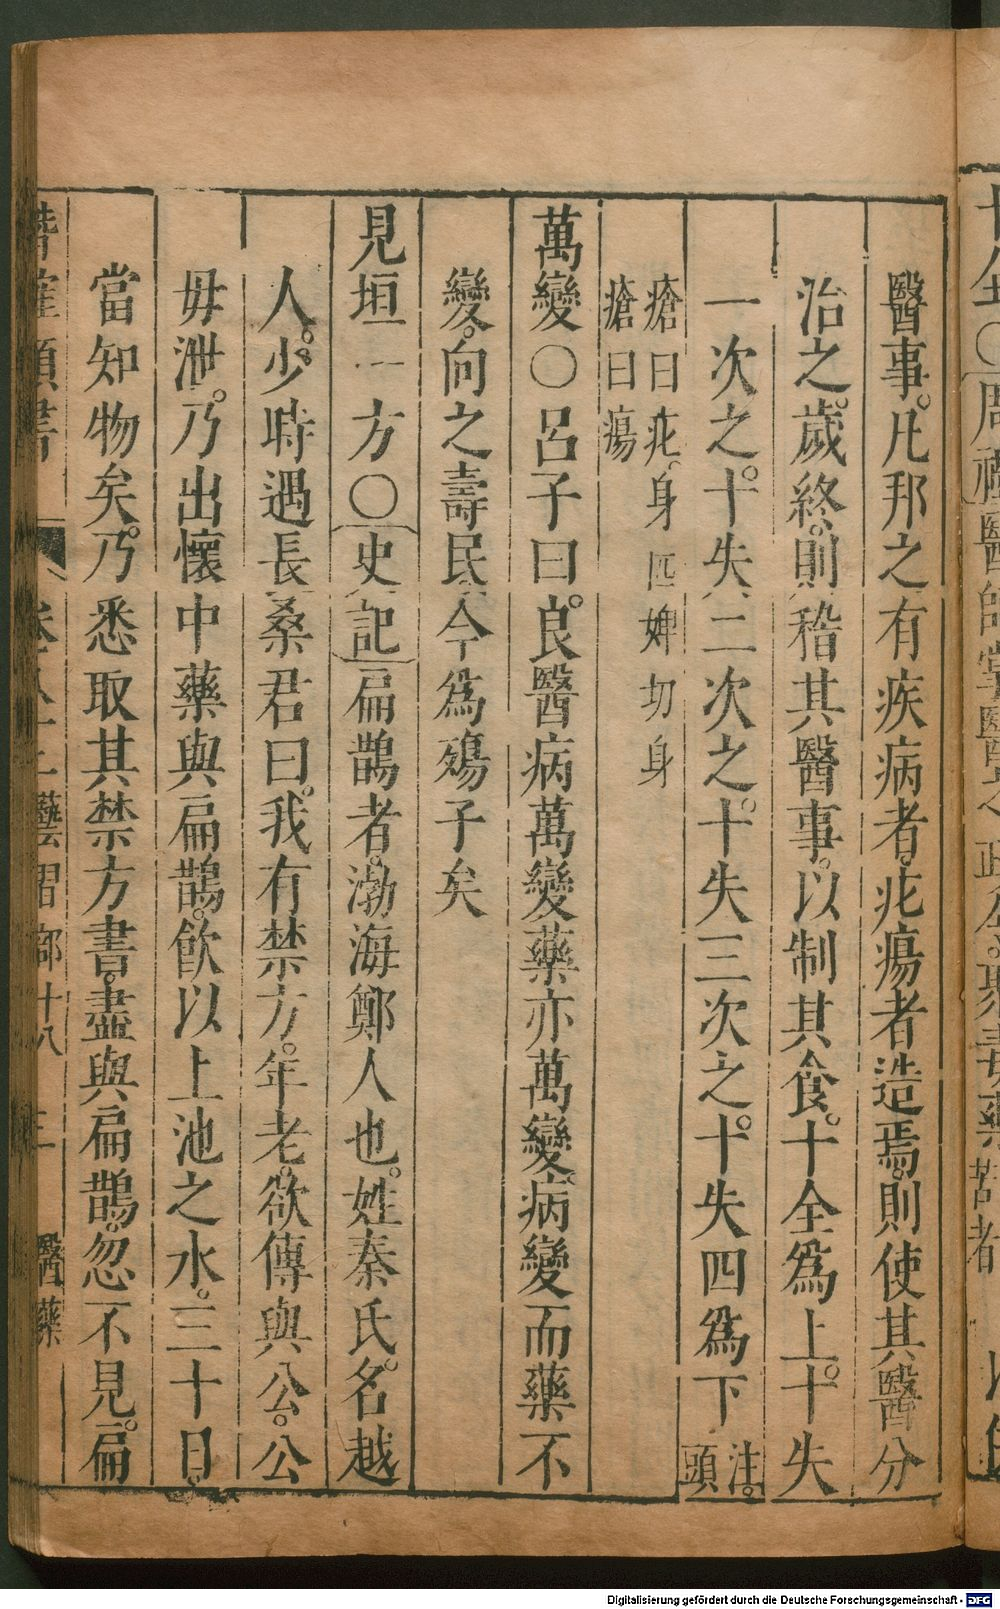 醫事。凡邦之有疾病者。疕瘍者造焉。則使其醫分
治之。歲終。則稽其醫事。以制其食。十全爲上。十失
一次之。十失二次之。十失三次之。十失四爲下 注。頭
瘡曰疕。身 匹婢切身
瘡曰瘍
萬變〇呂子曰。良醫病萬變藥亦萬變。病變而藥不
變。向之壽民今爲殤子矣
見垣一方〇史記扁鵲者。渤海鄭人也。姓秦氏。名越
人。少時遇長桑君曰。我有禁方。年老。欲傳與公。公
毋泄。乃出懷中藥與扁鵲。飮以上池之水。三十日。
當知物矣。乃悉取其禁方書。盡與扁鵲。忽不見。扁
潛確類書 藝習部十八 三 醫藥
〇周禮醫師掌醫之政令。聚毒藥
Digitalisierung gefördert durch die Deutsche Forschungsgemeinschaft - DFG